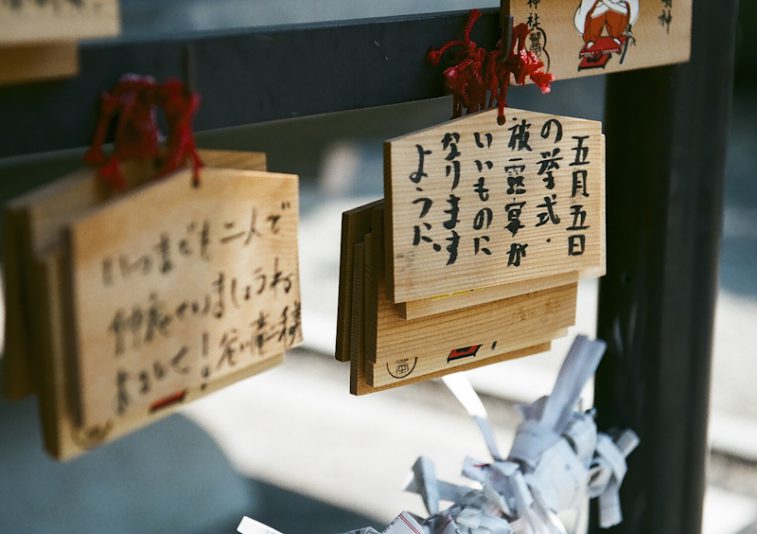 五月五日
の挙式・
披露宴が
いいものに
なります
ように、
いつまでも二人で
仲良くいましょうね
よろしく!
神社